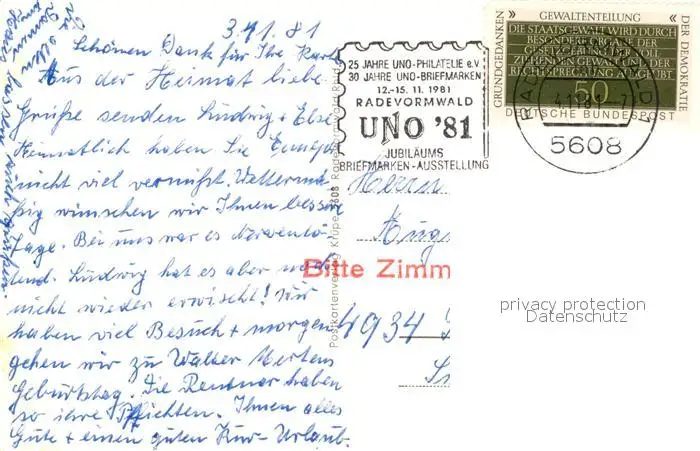 3.11.81
Schönen Dank für Ihre Karte
Aus der Heimat liebe
Grüße senden Ludwig + Else
Heimatlich haben Sie
nicht viel vermißt. Wettermä-
ßig wünschen wir Ihnen bessere
Tage. Bei uns war es
Ludwig hat es aber
nicht wieder erwischt! Wir
haben viel Besuch + morgen
gehen wir zu Walter Mertens
Geburtstag. Die Rentner haben
so ihre Pflichten. Ihnen alles
Gute + einen guten Kur-Urlaub.
Die
Damen
lassen auch grüßen.
25 JAHRE UNO-PHILATELIE e.V
30 JAHRE UNO-BRIEFMARKEN
12.-15. 11. 1981
RADEVORMWALD
UNO '81
JUBILÄUMS
BRIEFMARKEN-AUSSTELLUNG
GRUNDGEDANKEN »
GEWALTENTEILUNG
« DER DEMOKRATIE
DIE STAATSGEWALT WIRD DURCH
BESONDERE ORGANE DER
GESETZGEBUNG, DER VOLL-
ZIEHENDEN GEWALT UND DER
RECHTSPRECHUNG AUSGEÜBT
50
DEUTSCHE BUNDESPOST
5608
Postkartenverlag Krüper 5608
Herrn
Bitte Zimm
4934
privacy protection
Datenschutz